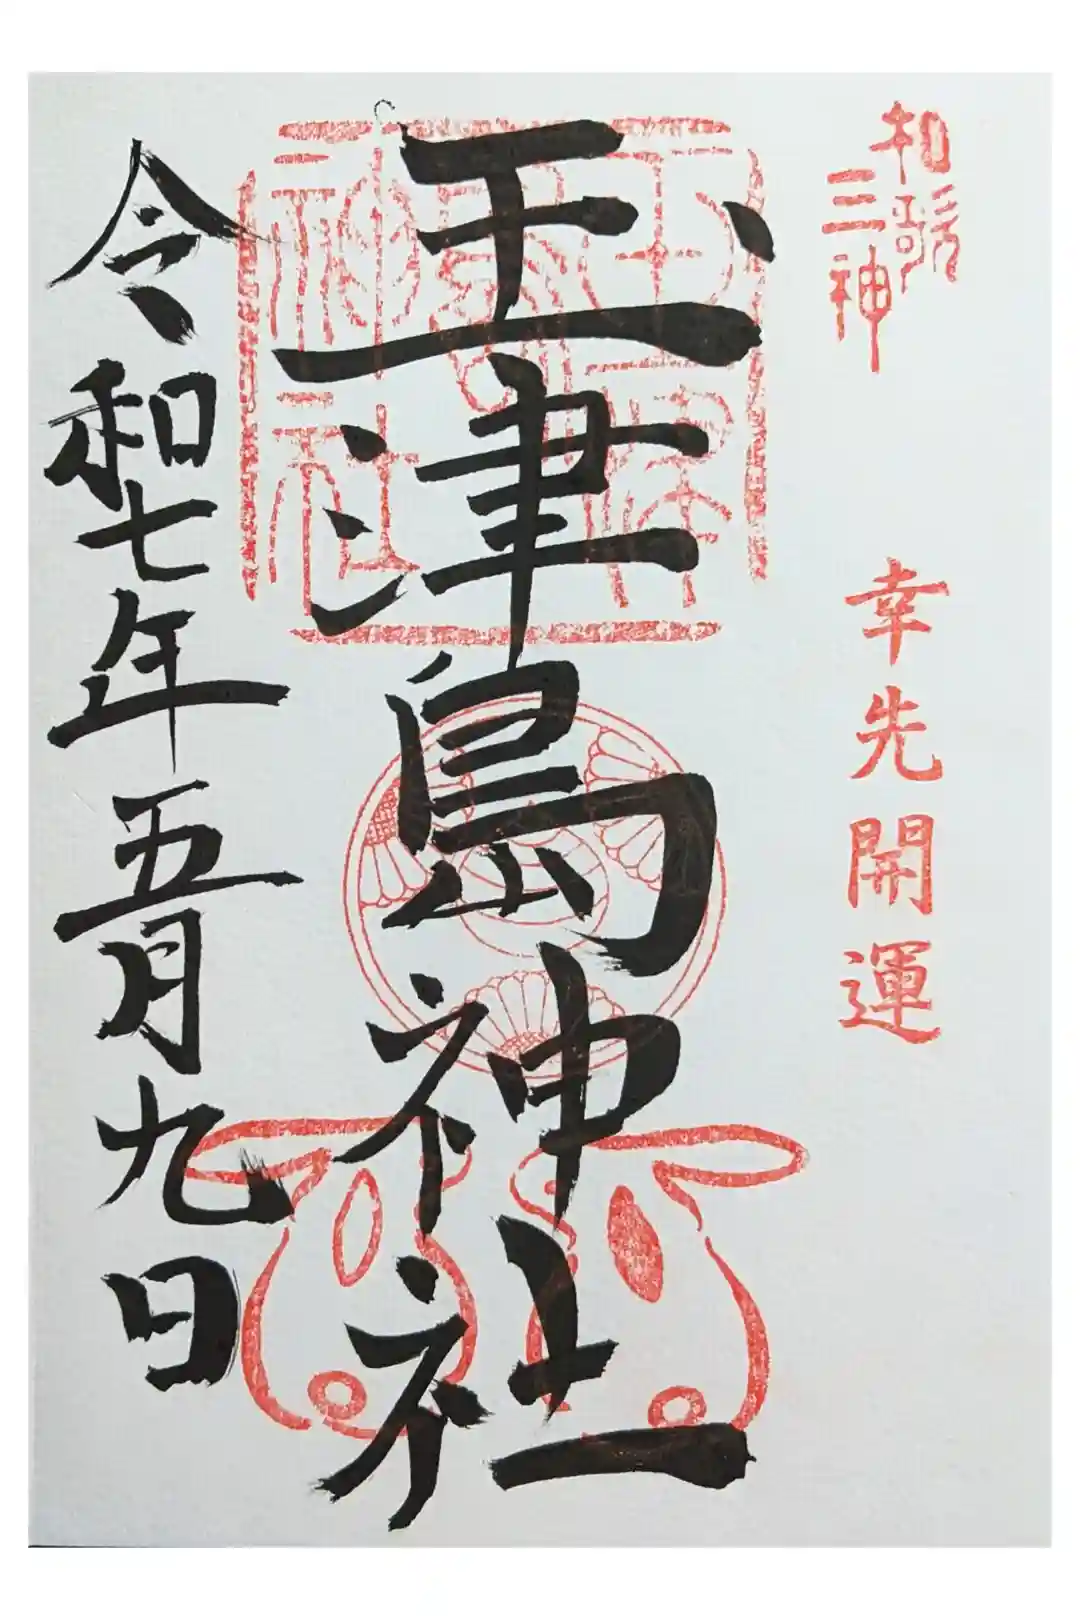 和歌
三神
幸先開運
玉津島神社
玉津
島
神社
令和七年五月九日